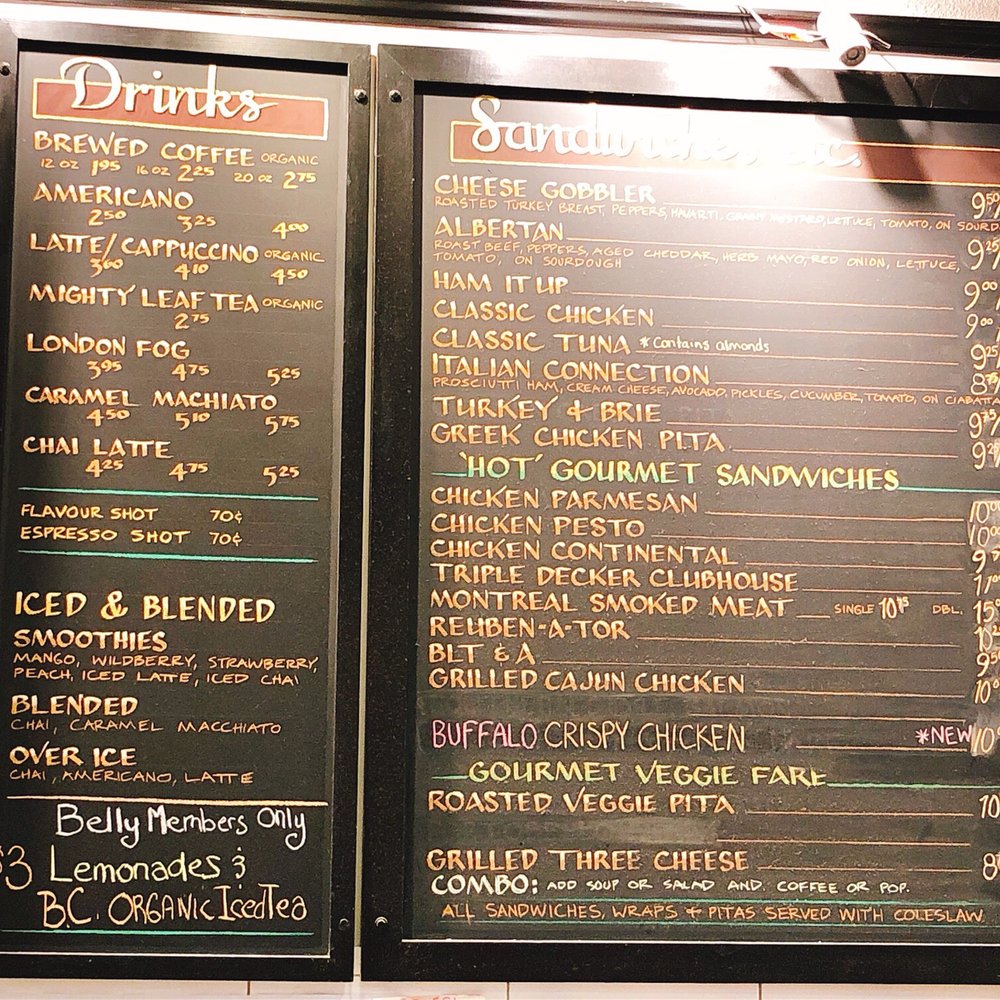 Drinks
BREWED COFFEE ORGANIC
12 OZ 1.95 16 OZ 2.25 20 OZ 2.75
AMERICANO
2.50 3.25 4.00
LATTE/CAPPUCCINO ORGANIC
3.60 4.10 4.50
MIGHTY LEAF TEA ORGANIC
2.75
LONDON FOG
3.95 4.75 5.25
CARAMEL MACHIATO
4.50 5.10 5.75
CHAI LATTE
4.25 4.75 5.25
FLAVOUR SHOT 70¢
ESPRESSO SHOT 70¢
ICED & BLENDED
SMOOTHIES
MANGO, WILDBERRY, STRAWBERRY,
PEACH, ICED LATTE, ICED CHAI
BLENDED
CHAI, CARAMEL MACCHIATO
OVER ICE
CHAI, AMERICANO, LATTE
Belly Members Only
$3 Lemonades &
B.C. ORGANIC Iced Tea
Sandwiches, etc.
CHEESE GOBBLER 9.50
ROASTED TURKEY BREAST, PEPPERS, HAVARTI, GRAINY MUSTARD, LETTUCE, TOMATO, ON SOURD
ALBERTAN 9.25
ROAST BEEF, PEPPERS, AGED CHEDDAR, HERB MAYO, RED ONION, LETTUCE,
TOMATO, ON SOURDOUGH
HAM IT UP 9.00
CLASSIC CHICKEN 9.00
CLASSIC TUNA *Contains almonds 9.25
ITALIAN CONNECTION 8.75
PROSCIUTTI HAM, CREAM CHEESE, AVOCADO, PICKLES, CUCUMBER, TOMATO, ON CIABATTA
TURKEY & BRIE 9.75
GREEK CHICKEN PITA 9.2
'HOT' GOURMET SANDWICHES
CHICKEN PARMESAN 10.0
CHICKEN PESTO 10.0
CHICKEN CONTINENTAL 9.7
TRIPLE DECKER CLUBHOUSE 11.0
MONTREAL SMOKED MEAT SINGLE 10.75 DBL. 15
REUBEN-A-TOR 10
BLT & A 9.5
GRILLED CAJUN CHICKEN 10.0
BUFFALO CRISPY CHICKEN *NEW 10
GOURMET VEGGIE FARE
ROASTED VEGGIE PITA 10
GRILLED THREE CHEESE 8
COMBO: ADD SOUP OR SALAD AND. COFFEE OR POP.
ALL SANDWICHES, WRAPS & PITAS SERVED WITH COLESLAW